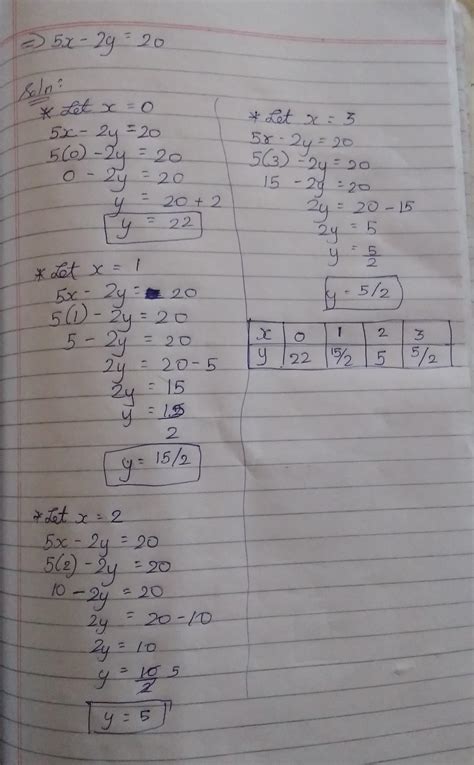 ⇒ 5x - 2y = 20
Soln:
* Let x = 0
5x - 2y = 20
5(0) - 2y = 20
0 - 2y = 20
y = 20 + 2
y = 22
* Let x = 1
5x - 2y = 20
5(1) - 2y = 20
5 - 2y = 20
2y = 20 - 5
2y = 15
y = 15/2
y = 15/2
* Let x = 2
5x - 2y = 20
5(2) - 2y = 20
10 - 2y = 20
2y = 20 - 10
2y = 10
y = 10/2 5
y = 5
* Let x = 3
5x - 2y = 20
5(3) - 2y = 20
15 - 2y = 20
2y = 20 - 15
2y = 5
y = 5/2
y = 5/2
x 0 1 2 3
y 22 15/2 5 5/2